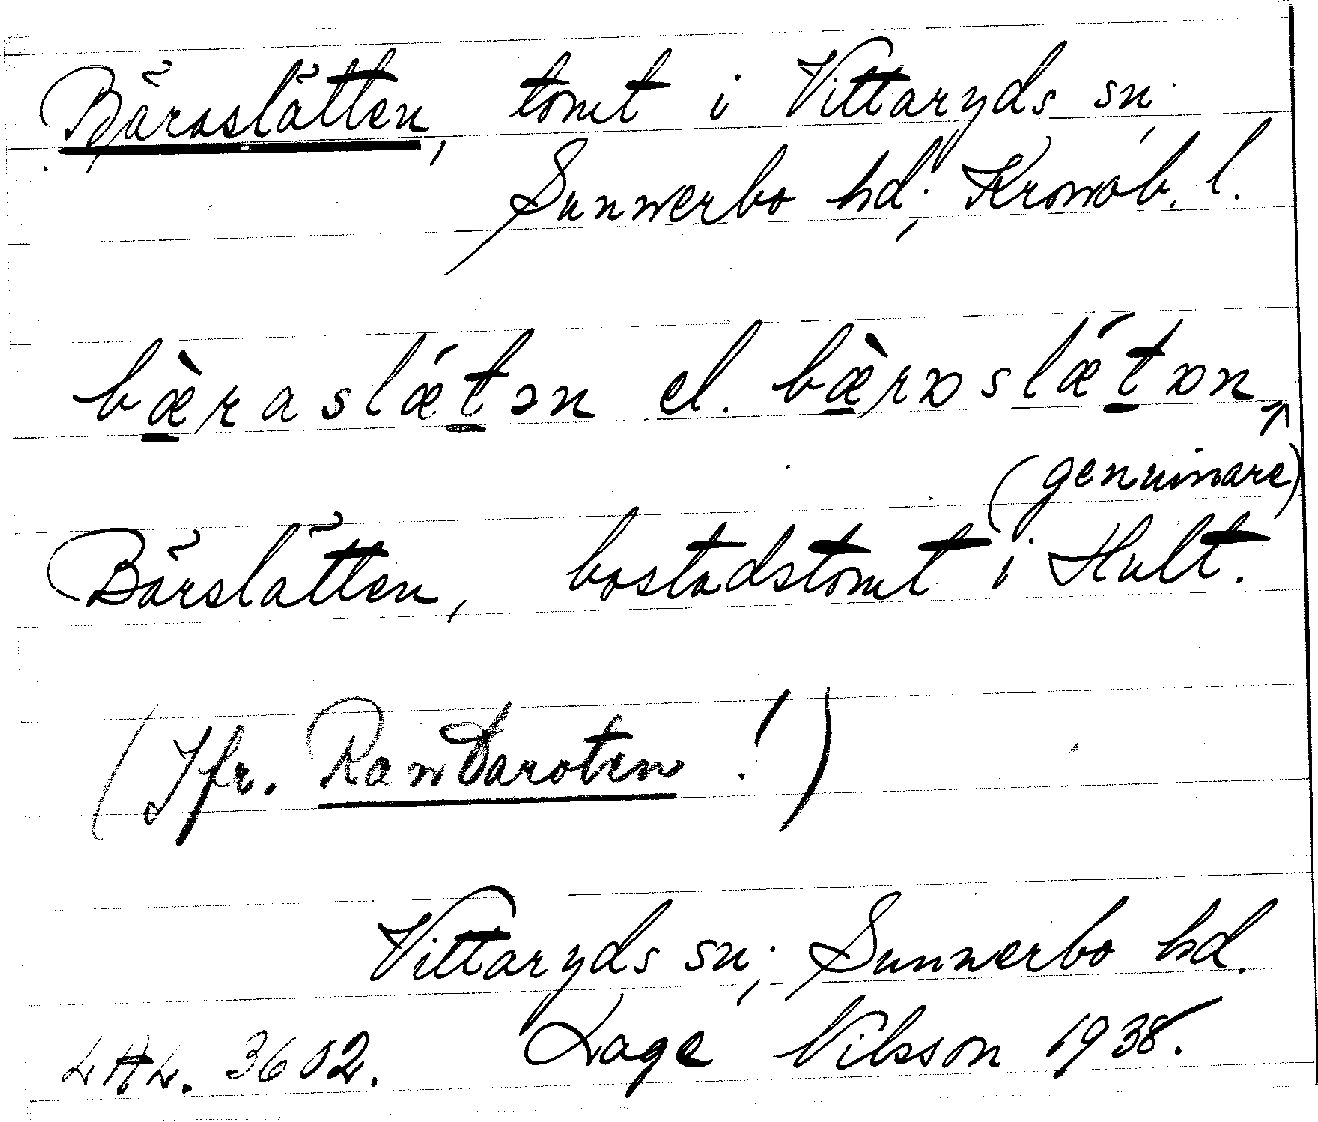 Bäraslätten, tomt i Vittaryds sn.
Sunnerbo hd; Kronob. l.
bæ̀raslǽtən el. bæ̀rɷslǽtɷn
(genuinare)
Bärslätten, bostadstomt i Hult.
(Jfr. Rawdaroten !)
Vittaryds sn; Sunnerbo hd.
LAL. 3602. Lage Nilsson 1938.